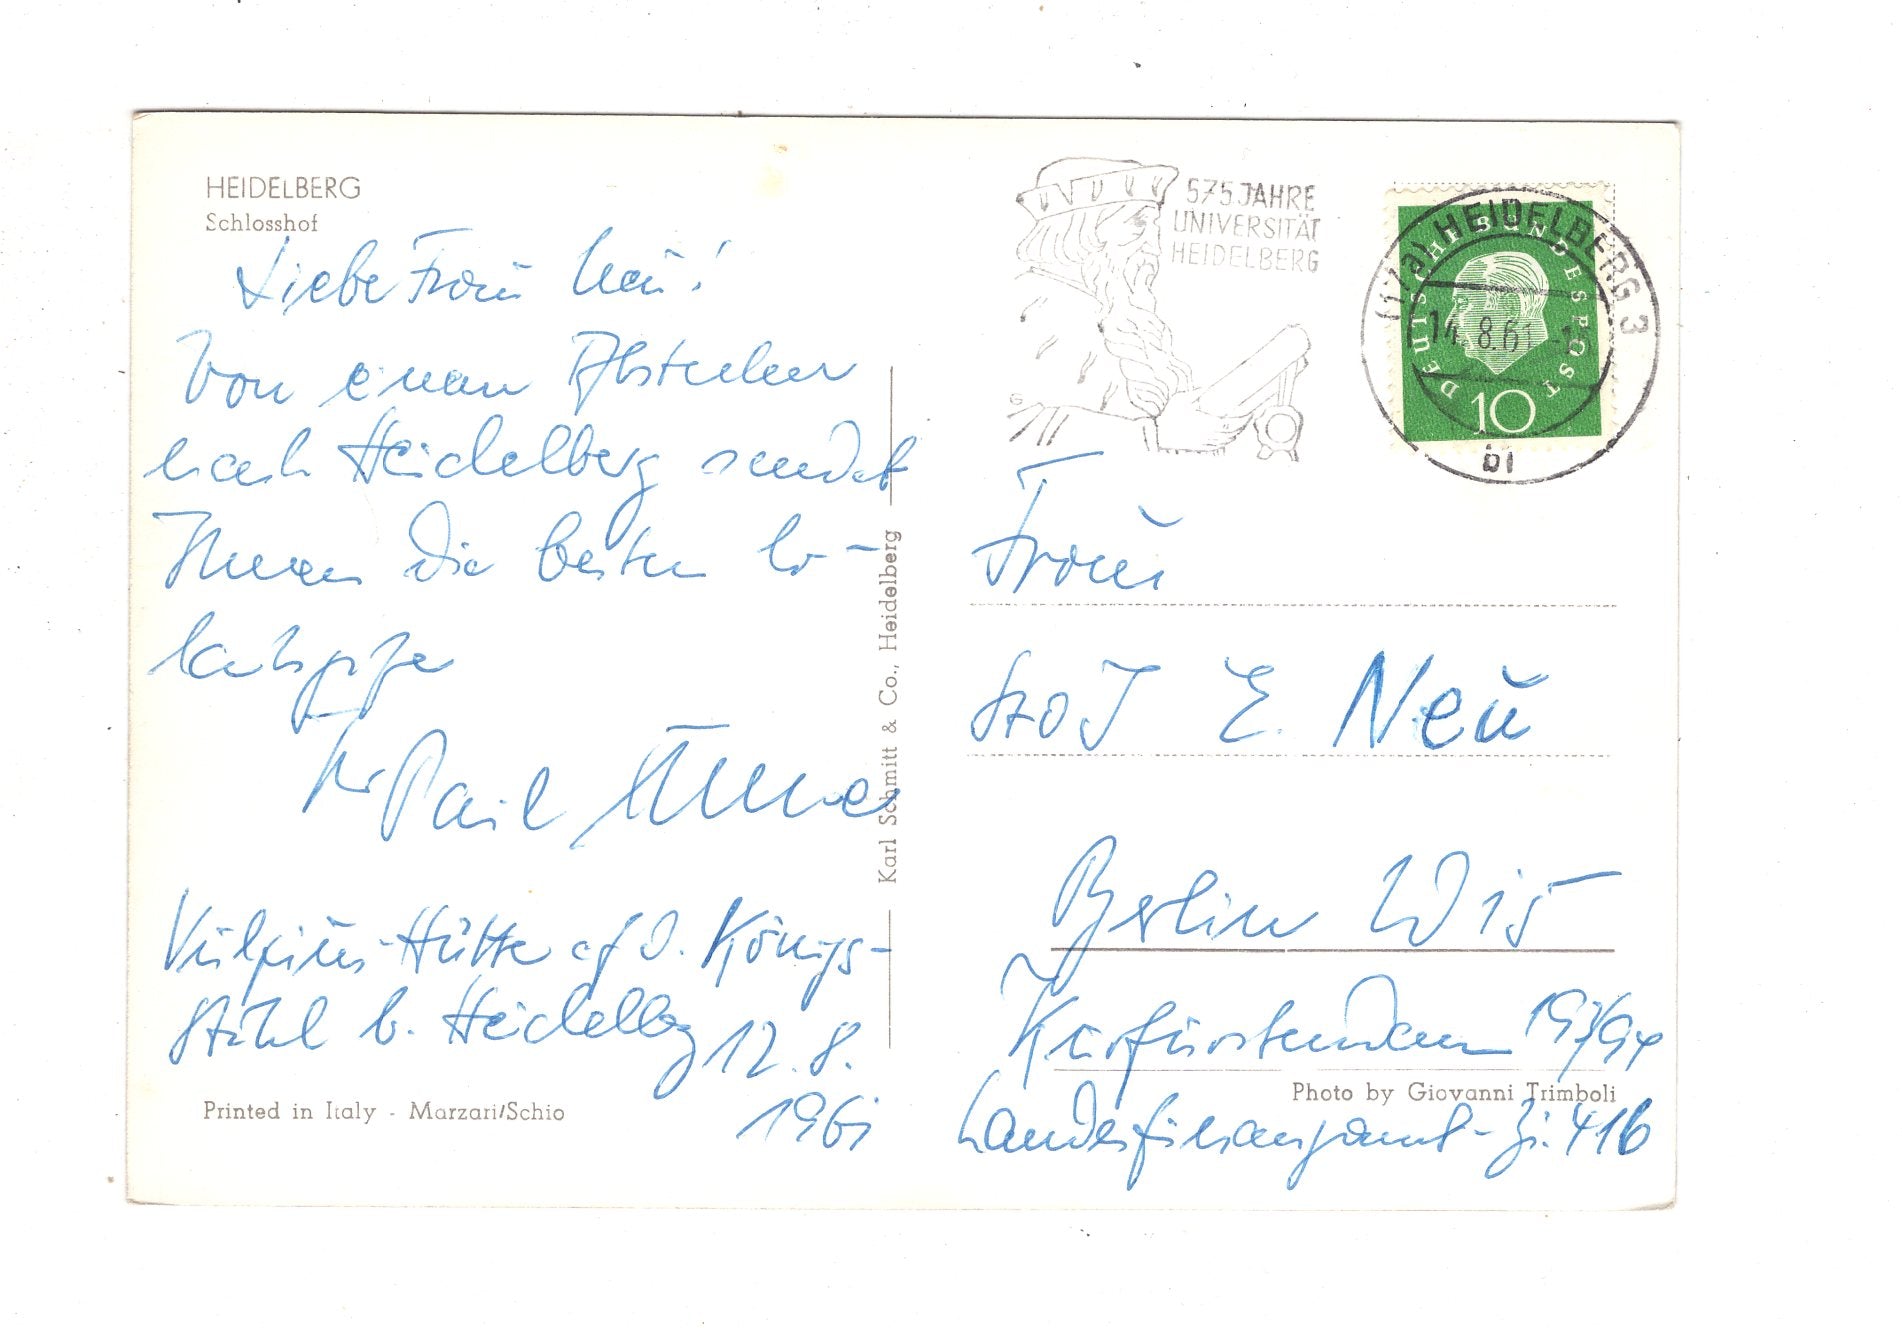 HEIDELBERG
Schlosshof
Liebe Frau Neu!
Von einem Abstecher
nach Heidelberg sendet
Ihnen die besten
Ihr Paul
Vulpius-Hütte auf d. Königs-
stuhl b. Heidelbg 12. 8.
1961
Printed in Italy - Marzari/Schio
Karl Schmitt & Co., Heidelberg
575 JAHRE
UNIVERSITÄT
HEIDELBERG
(17a) HEIDELBERG 3
14.8.61
bi
DEUTSCHE BUNDESPOST
10
Frau
StOI E. Neu
Berlin W 15
Kurfürstendamm 193/94
Photo by Giovanni Trimboli
Landesfinanzamt - Zi. 416